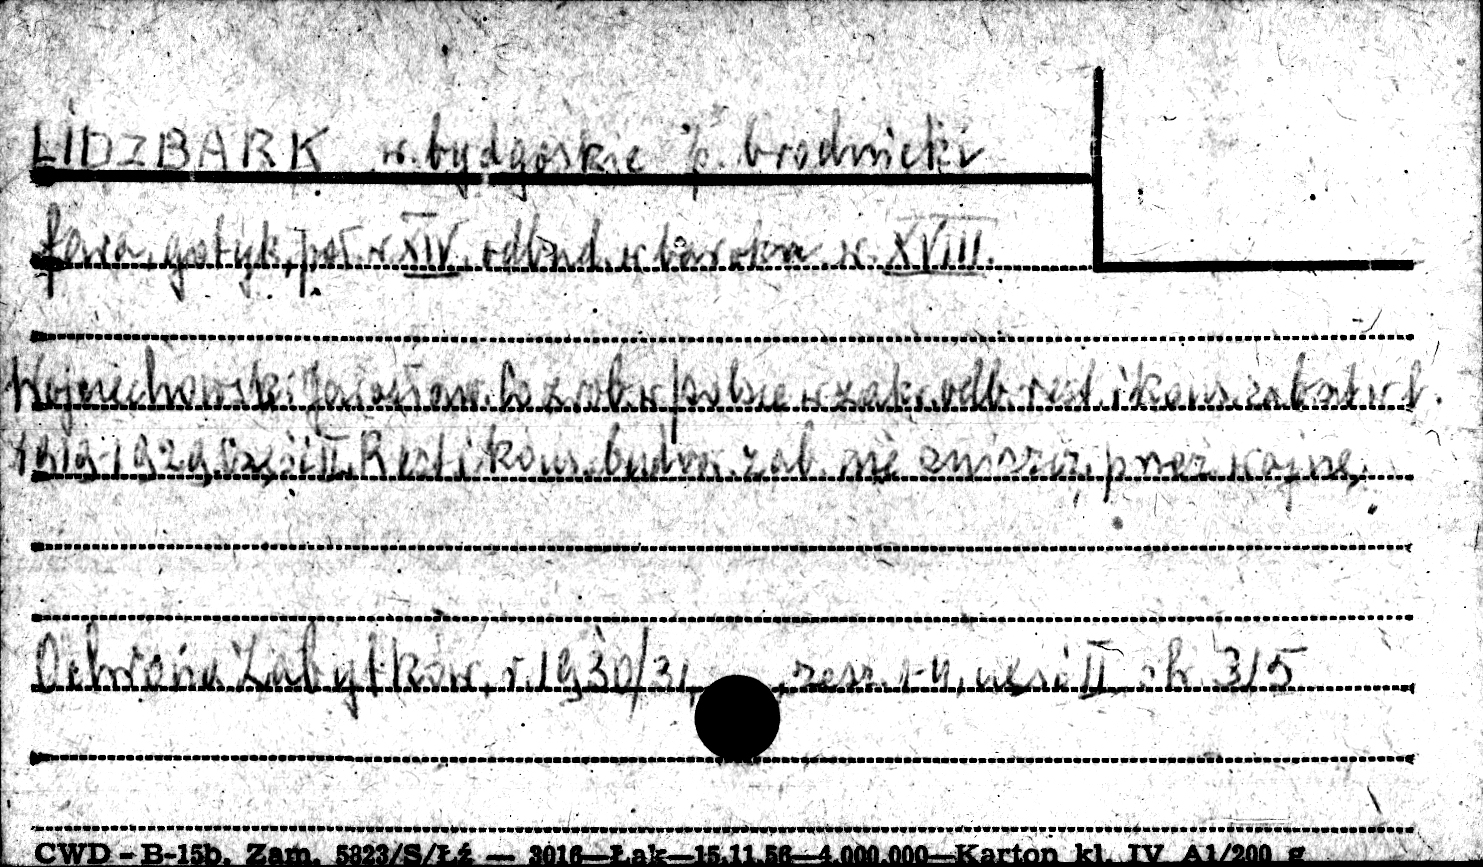 LIDZBARK w. bydgoskie p. brodnicki
fara, gotyk, poł. w XIV, odbud. w baroku w. XVIII.
Wojciechowski Jarosław. Co zrob. w Polsce w zakr. odb. rest. i kons. zabyt. w l.
1919-1929, Część II. Rest. i kons. budow. zab. nie zniszcz. przez wojnę,
Ochrona Zabytków, r. 1930/31, zesz. 1-4, część II str. 315
CWD - B-15b. Zam. 5823/S/Łź — 3016—Łak—15.11.56—4.000.000—Karton kl. IV A1/200 g